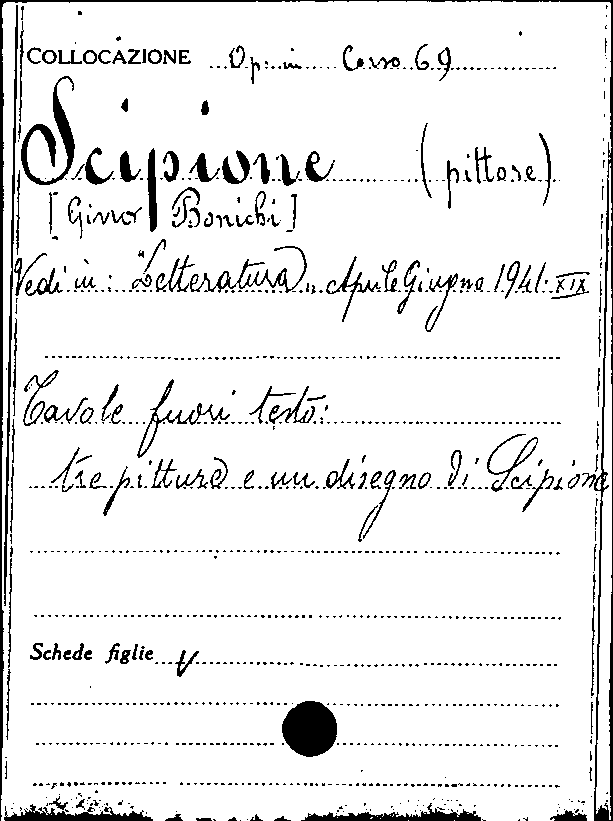 COLLOCAZIONE Op. in Corso 69
Scipione (pittore)
[Gino Bonichi]
Vedi in: "Letteratura" Aprile Giugno 1941. XIX
Tavole fuori testo:
tre pitture e un disegno di Scipione
Schede figlie V